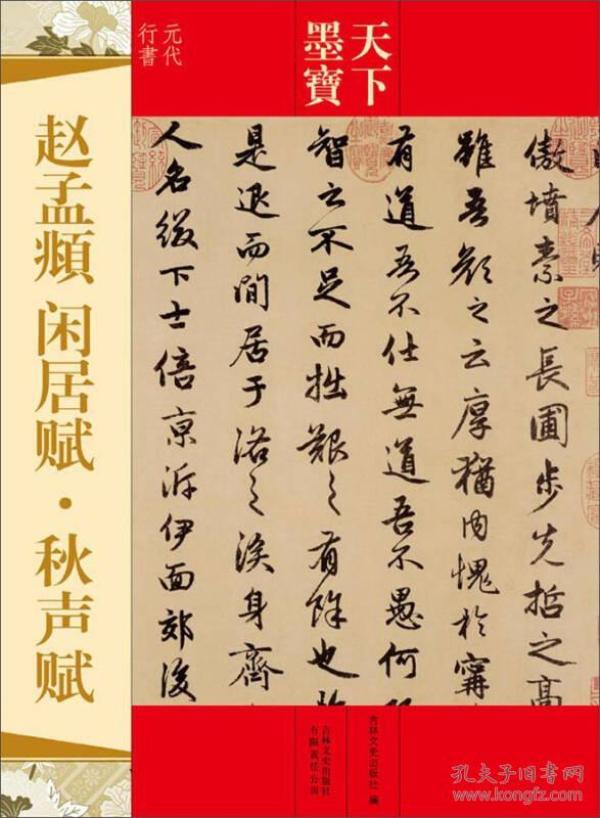 元代
行書
天下
墨寶
赵孟頫 闲居赋·秋声赋
傲墳素之長圃步先哲之高
雖吾顏之云厚猶内愧於甯
有道吾不仕無道吾不愚何
智之不足而拙艱之有餘也
是退而閒居于洛之涘身齊
人名綴下士倍京泝伊面郊後
吉林文史出版社 编
吉林文史出版社
有限责任公司
孔夫子旧书网
www.kongfz.com